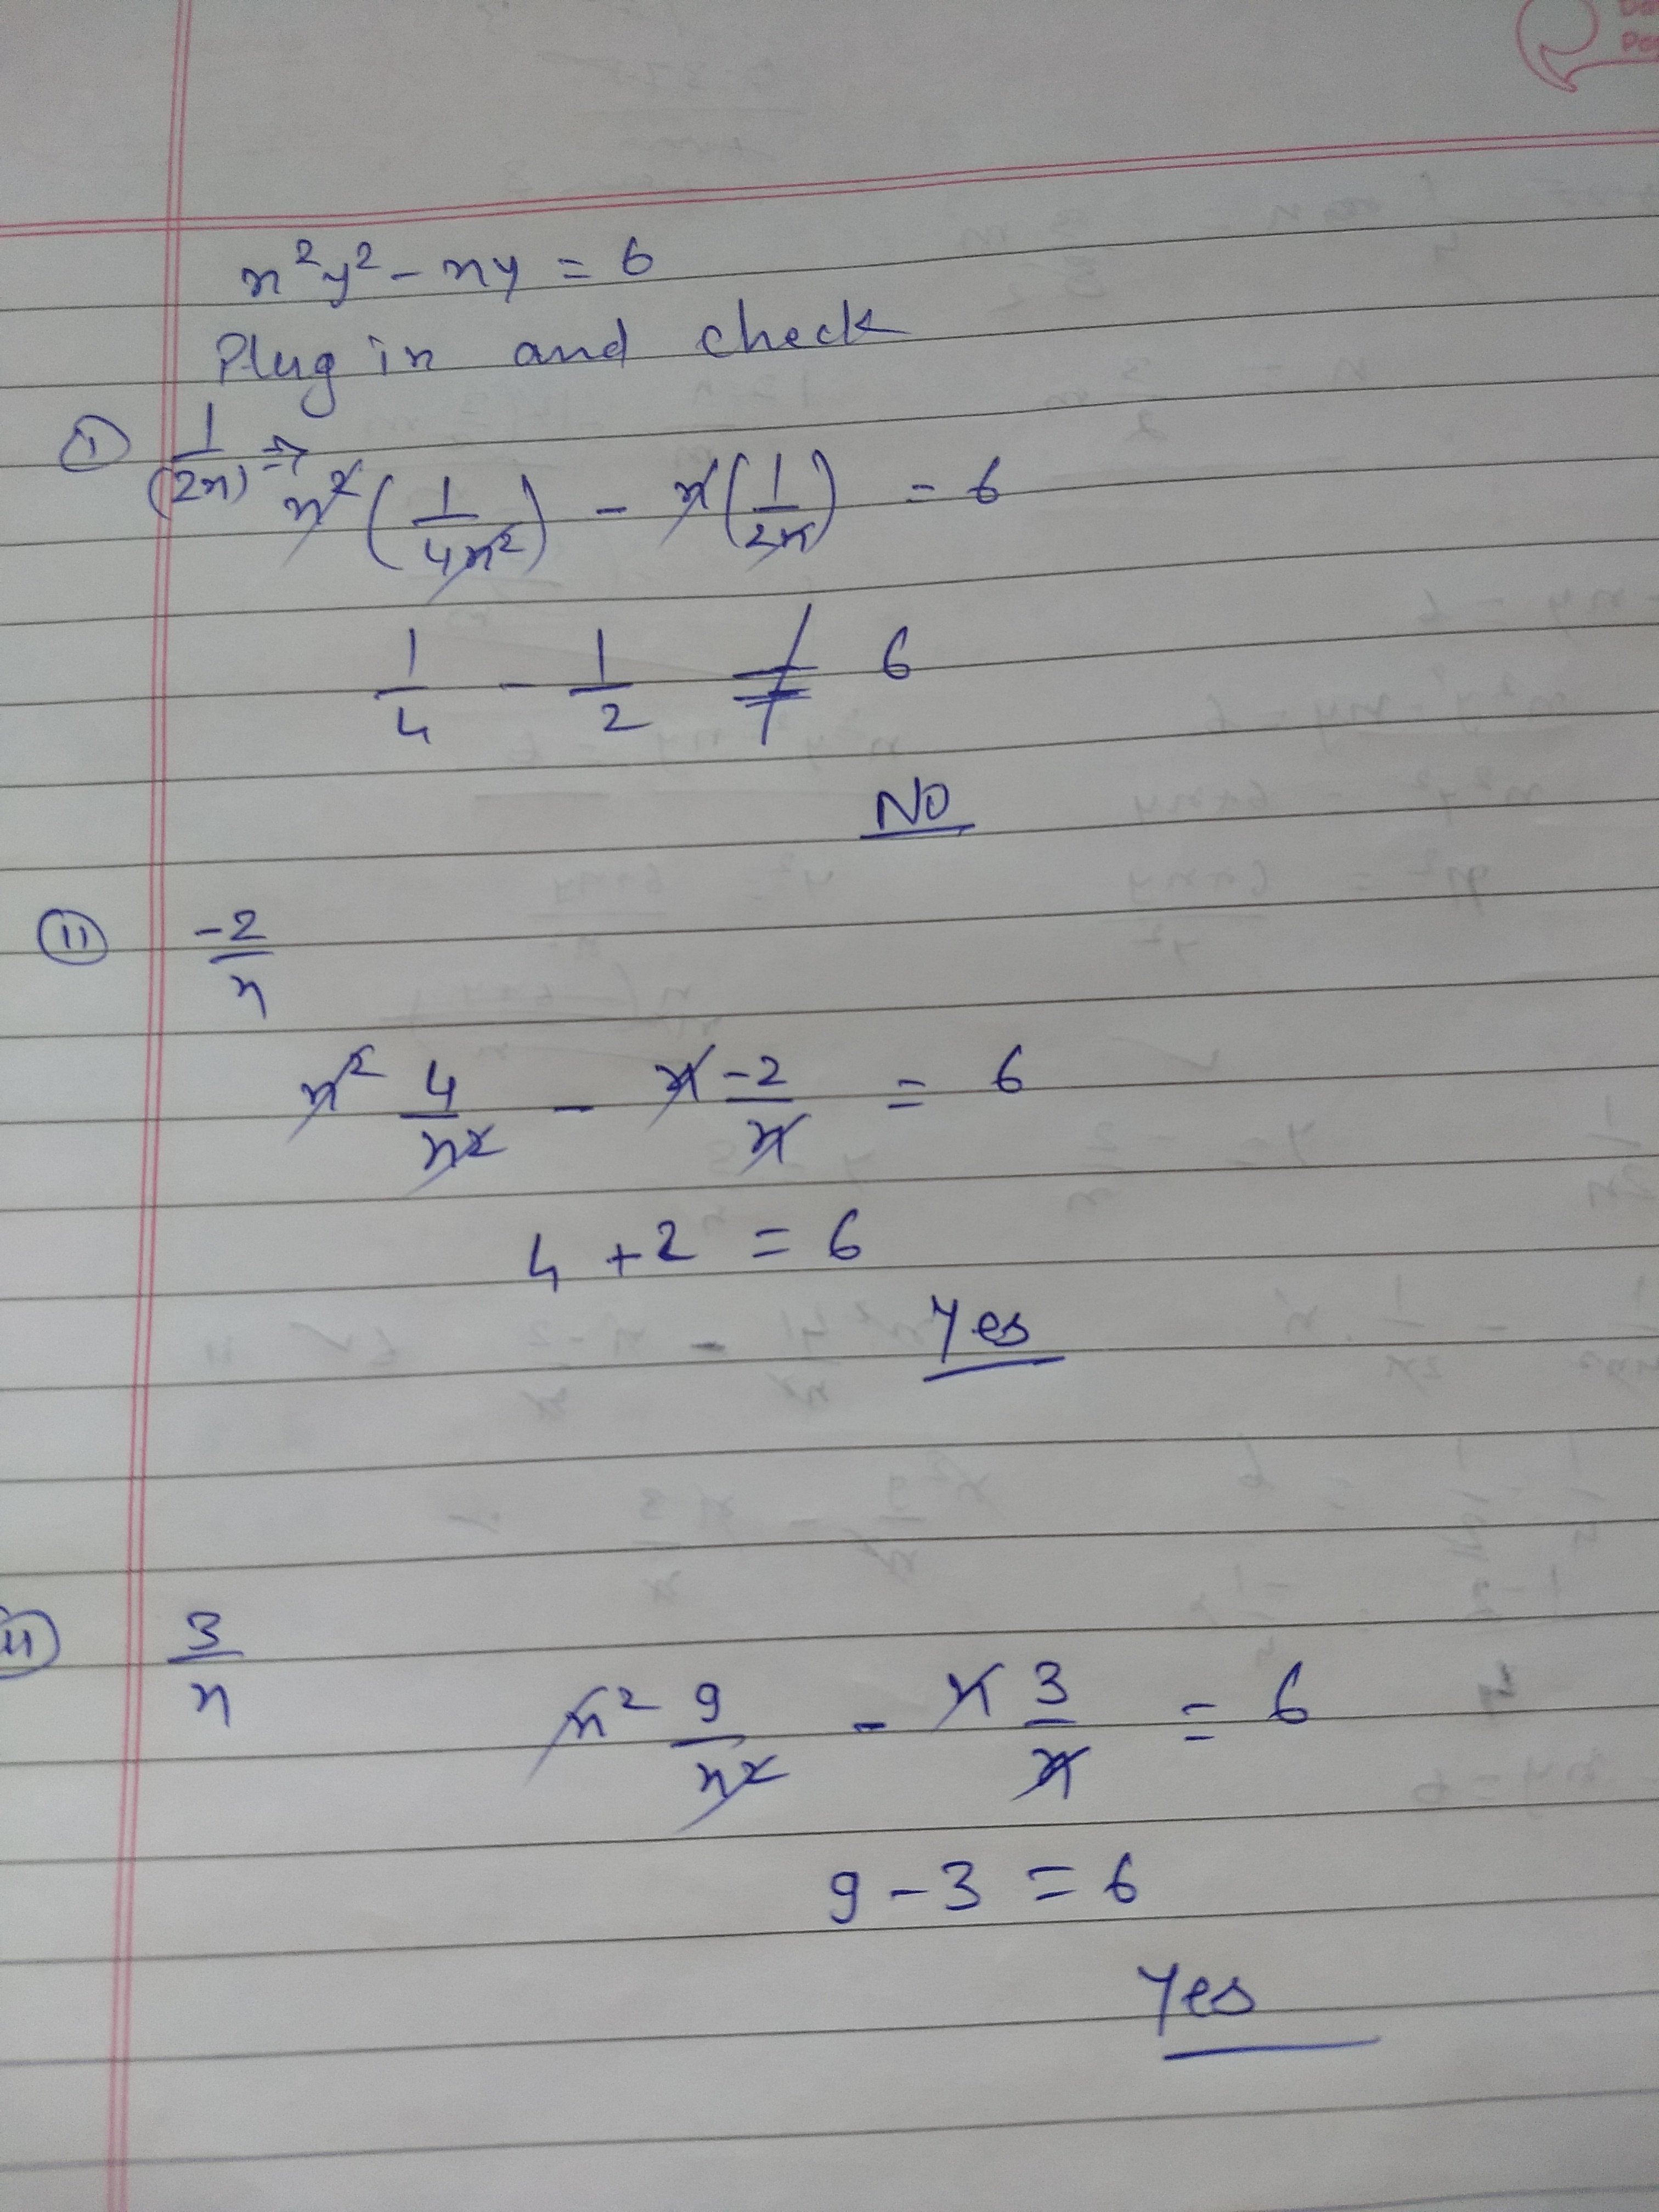 x²y² - xy = 6
Plug in and check
(I) 1/(2x) ⇒
x²(1/4x²) - x(1/2x) = 6
1/4 - 1/2 ≠ 6
NO
(II) -2/x
x² 4/x² - x -2/x = 6
4 + 2 = 6
Yes
3/x x² 9/x² - x 3/x = 6
9 - 3 = 6
Yes